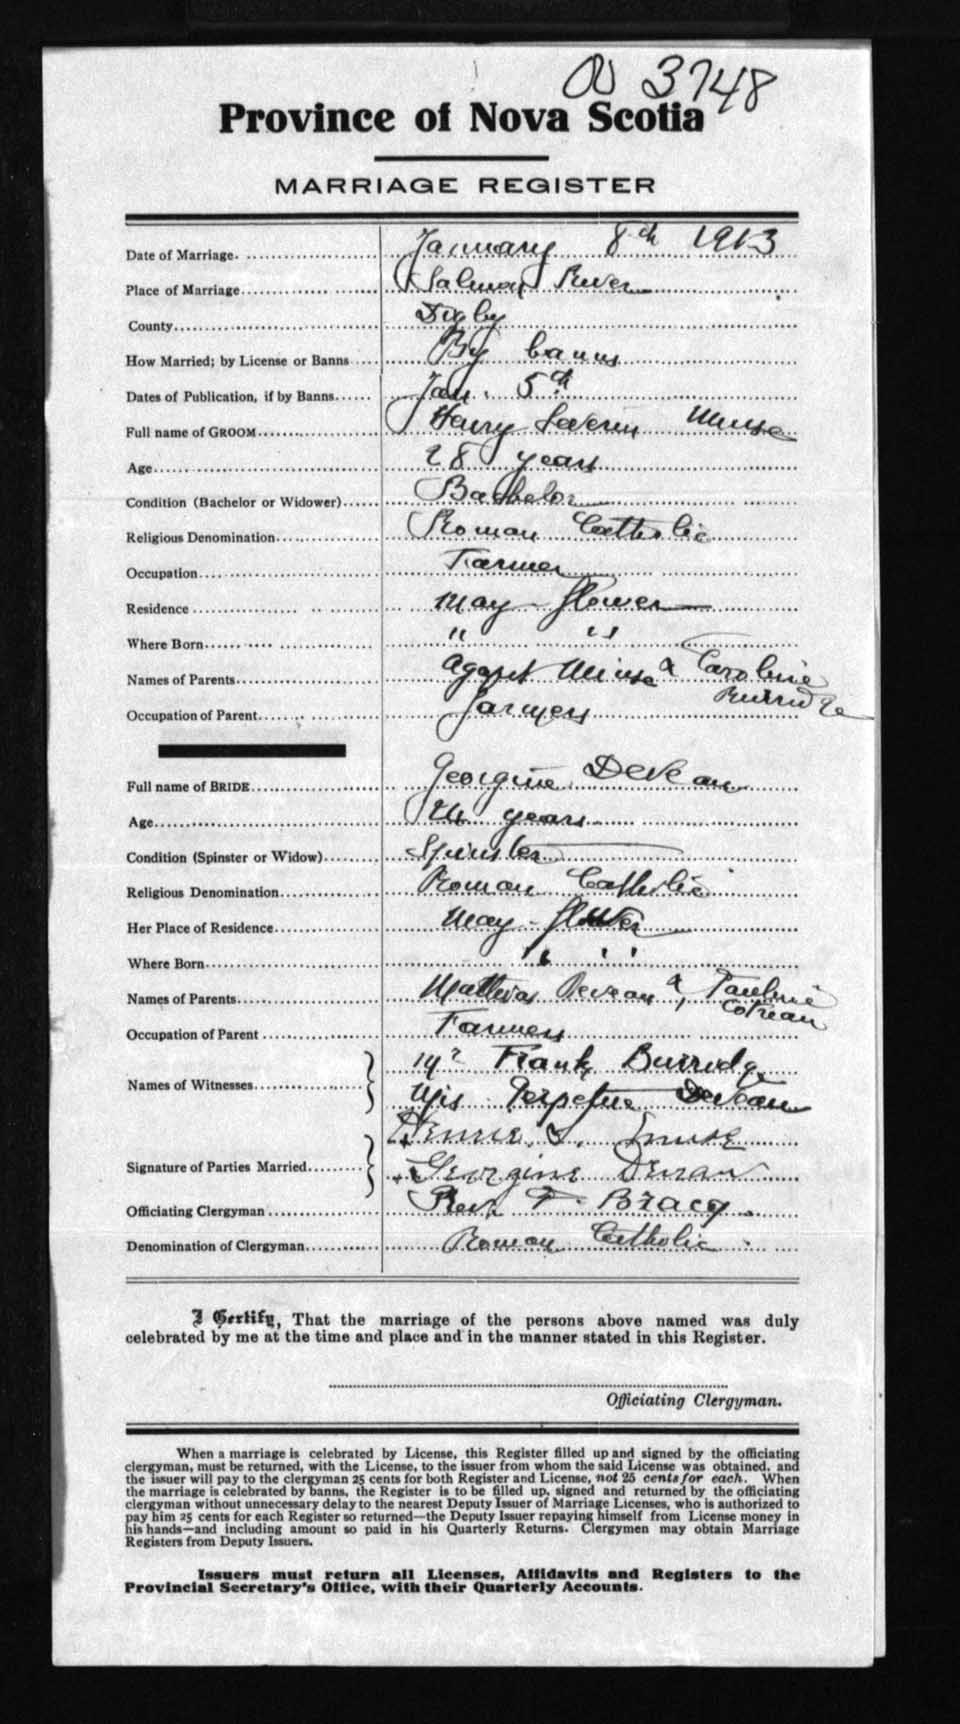 3748
Province of Nova Scotia
MARRIAGE REGISTER
Date of Marriage. January 8th 1913
Place of Marriage Salmon River
County Digby
How Married; by License or Banns By banns
Dates of Publication, if by Banns Jan. 5th
Full name of GROOM Henry Severin Muise
Age 28 years
Condition (Bachelor or Widower) Bachelor
Religious Denomination Roman Catholic
Occupation Farmer
Residence May-flower
Where Born " "
Names of Parents Muise & Caroline
Burridge
Occupation of Parent Farmers
Full name of BRIDE Georgine DeVeau
Age years
Condition (Spinster or Widow) Spinster
Religious Denomination Roman Catholic
Her Place of Residence May-flower
Where Born " "
Names of Parents Mathias Deveau & Pauline
Cotreau
Occupation of Parent Farmers
Names of Witnesses Frank Burridge
Perpetue DeVeau
Signature of Parties Married S. Muise
Georgine Deveau
Officiating Clergyman Rev. Bracq.
Denomination of Clergyman Roman Catholic
I Certify, That the marriage of the persons above named was duly
celebrated by me at the time and place and in the manner stated in this Register.
Officiating Clergyman.
When a marriage is celebrated by License, this Register filled up and signed by the officiating
clergyman, must be returned, with the License, to the issuer from whom the said License was obtained, and
the issuer will pay to the clergyman 25 cents for both Register and License, not 25 cents for each. When
the marriage is celebrated by banns, the Register is to be filled up, signed and returned by the officiating
clergyman without unnecessary delay to the nearest Deputy Issuer of Marriage Licenses, who is authorized to
pay him 25 cents for each Register so returned—the Deputy Issuer repaying himself from License money in
his hands—and including amount so paid in his Quarterly Returns. Clergymen may obtain Marriage
Registers from Deputy Issuers.
Issuers must return all Licenses, Affidavits and Registers to the
Provincial Secretary's Office, with their Quarterly Accounts.